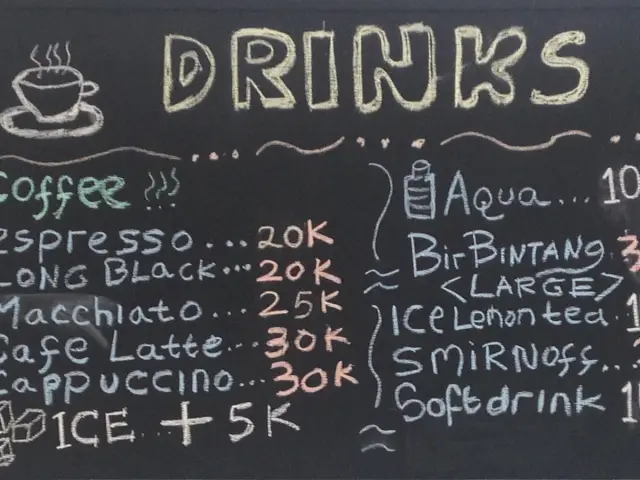 DRINKS
Coffee
espresso...20K
LONG BLACK...20K
Macchiato...25K
Cafe Latte...30K
Cappuccino...30K
ICE...+5K
Aqua...10
Bir BINTANG
<LARGE>
ICe Lemon tea
SMiRNoff...
Softdrink